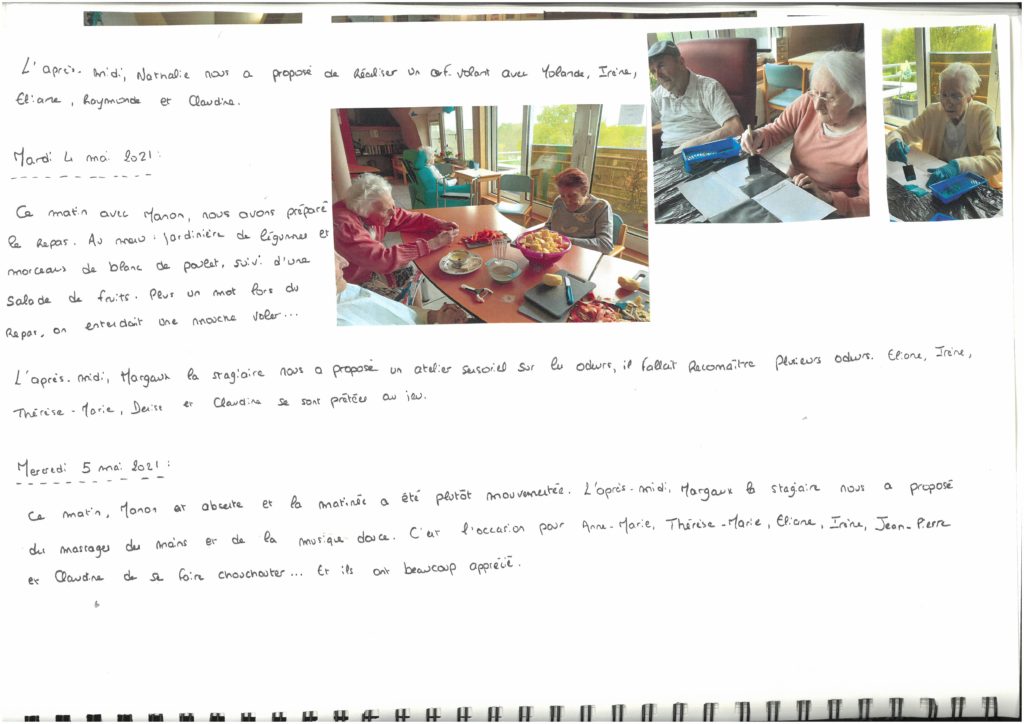 L'après-midi, Nathalie nous a proposé de Réaliser un cerf-volant avec Yolande, Irène,
Eliane, Raymonde et Claudine.
Mardi 4 mai 2021 :
Ce matin avec Manon, nous avons préparé
le Repas. Au menu : Jardinière de légumes et
morceaux de blanc de poulet, suivi d'une
Salade de fruits. Plus un mot lors du
Repas, on entendait une mouche voler...
L'après-midi, Margaux la stagiaire nous a proposé un atelier sensoriel sur les odeurs, il fallait Reconnaître plusieurs odeurs. Eliane, Irène,
Thérèse-Marie, Denise et Claudine se sont prêtées au jeu.
Mercredi 5 mai 2021 :
Ce matin, Manon est absente et la matinée a été plutôt mouvementée. L'après-midi, Margaux la stagiaire nous a proposé
des massages des mains et de la musique douce. C'est l'occasion pour Anne-Marie, Thérèse-Marie, Eliane, Irène, Jean-Pierre
et Claudine de se faire chouchouter... Et ils ont beaucoup apprécié.